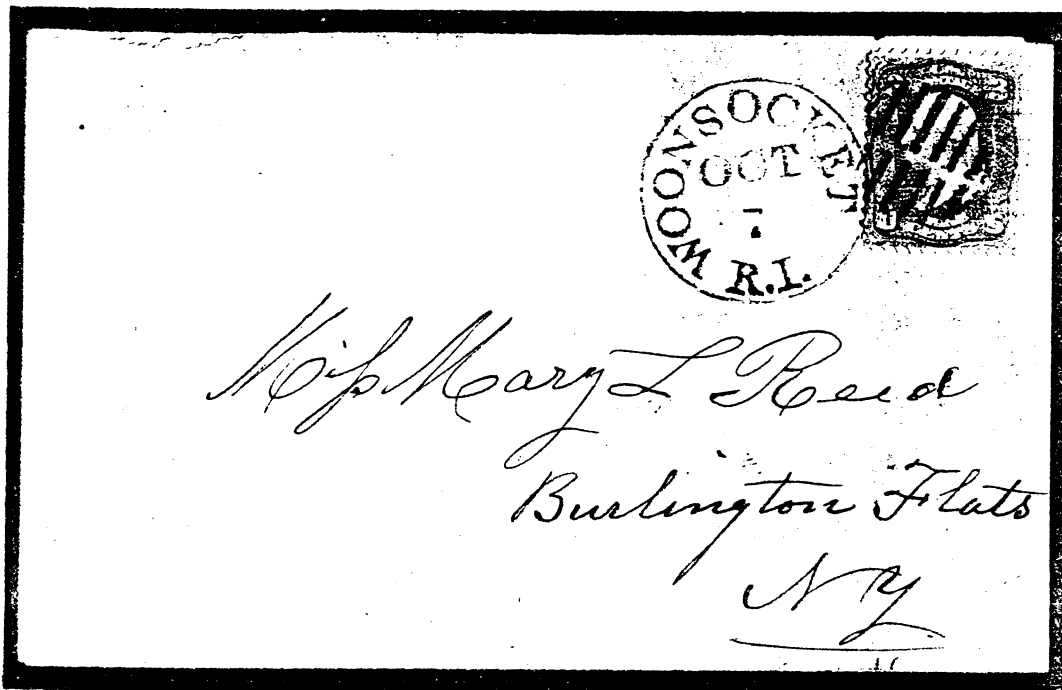 WOONSOCKET
OCT
7
R.I.
Miss Mary L Reed
Burlington Flats
NY